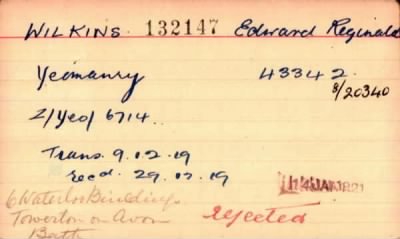 WILKINS. 132147 Edward Reginald
Yeomanry 43342
8/20340
2/Yeo/ 6714.
Trans. 9.12.19
recd. 29.12.19
14 JAN 1921
6 Waterloo Buildings
Twerton on Avon
Bath
rejected